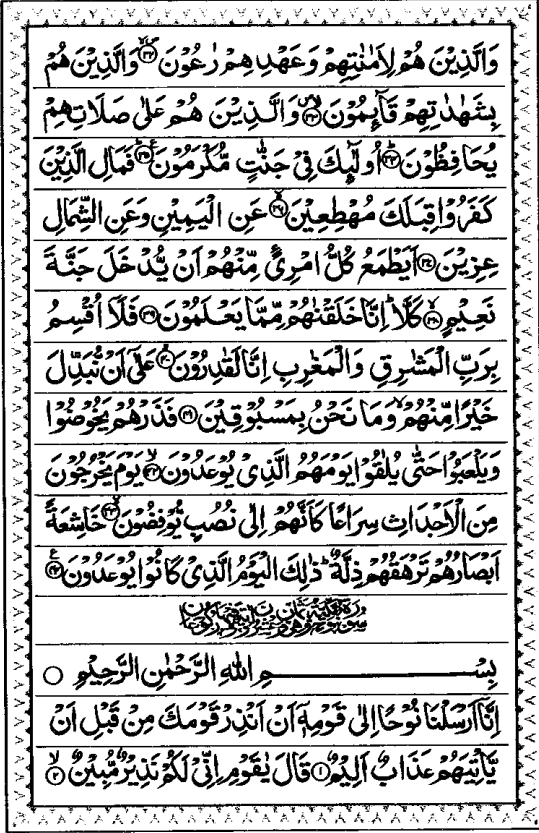 وَالَّذِيْنَ هُمْ لِاَمٰنٰتِهِمْ وَعَهْدِهِمْ رٰعُوْنَ ﴿۳۲﴾ وَالَّذِيْنَ هُمْ
بِشَهٰدٰتِهِمْ قَآئِمُوْنَ ﴿۳۳﴾ وَالَّذِيْنَ هُمْ عَلٰى صَلَاتِهِمْ
يُحَافِظُوْنَ ﴿۳۴﴾ اُولٰٓئِكَ فِيْ جَنّٰتٍ مُّكْرَمُوْنَ ﴿۳۵﴾ فَمَالِ الَّذِيْنَ
كَفَرُوْا قِبَلَكَ مُهْطِعِيْنَ ﴿۳۶﴾ عَنِ الْيَمِيْنِ وَعَنِ الشِّمَالِ
عِزِيْنَ ﴿۳۷﴾ اَيَطْمَعُ كُلُّ امْرِئٍ مِّنْهُمْ اَنْ يُّدْخَلَ جَنَّةَ
نَعِيْمٍ ﴿۳۸﴾ كَلَّا ؕ اِنَّا خَلَقْنٰهُمْ مِّمَّا يَعْلَمُوْنَ ﴿۳۹﴾ فَلَآ اُقْسِمُ
بِرَبِّ الْمَشٰرِقِ وَالْمَغٰرِبِ اِنَّا لَقٰدِرُوْنَ ﴿۴۰﴾ عَلٰٓى اَنْ نُّبَدِّلَ
خَيْرًا مِّنْهُمْ ۙ وَمَا نَحْنُ بِمَسْبُوْقِيْنَ ﴿۴۱﴾ فَذَرْهُمْ يَخُوْضُوْا
وَيَلْعَبُوْا حَتّٰى يُلٰقُوْا يَوْمَهُمُ الَّذِيْ يُوْعَدُوْنَ ﴿۴۲﴾ يَوْمَ يَخْرُجُوْنَ
مِنَ الْاَجْدَاثِ سِرَاعًا كَاَنَّهُمْ اِلٰى نُصُبٍ يُّوْفِضُوْنَ ﴿۴۳﴾ خَاشِعَةً
اَبْصَارُهُمْ تَرْهَقُهُمْ ذِلَّةٌ ؕ ذٰلِكَ الْيَوْمُ الَّذِيْ كَانُوْا يُوْعَدُوْنَ ﴿۴۴﴾
بِسْمِ اللّٰهِ الرَّحْمٰنِ الرَّحِيْمِ ○
اِنَّآ اَرْسَلْنَا نُوْحًا اِلٰى قَوْمِهٖٓ اَنْ اَنْذِرْ قَوْمَكَ مِنْ قَبْلِ اَنْ
يَّاْتِيَهُمْ عَذَابٌ اَلِيْمٌ ﴿۱﴾ قَالَ يٰقَوْمِ اِنِّيْ لَكُمْ نَذِيْرٌ مُّبِيْنٌ ﴿۲﴾